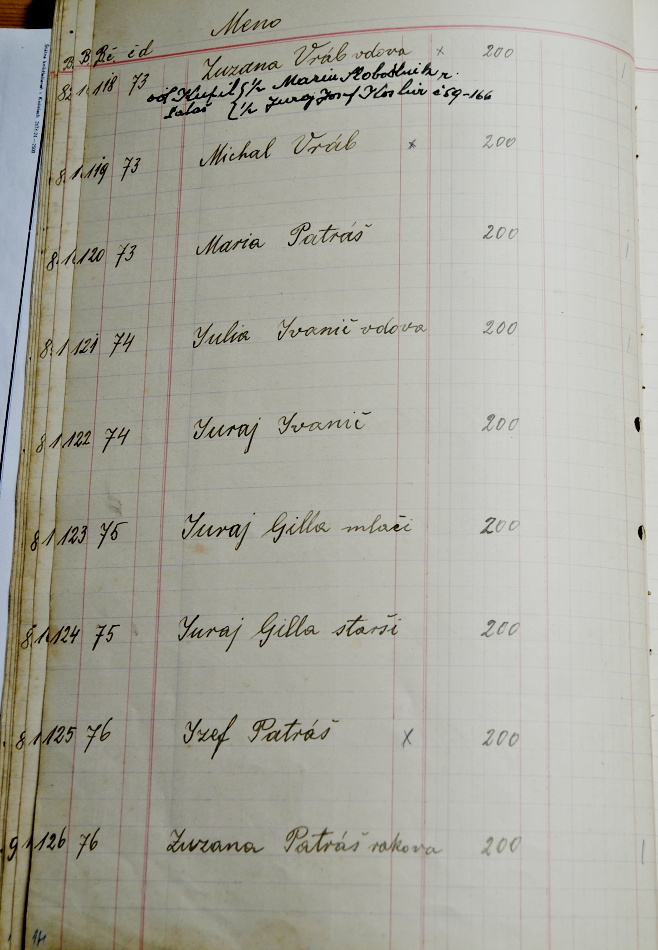 Meno
B. Rč čd
118 73 Zuzana Vráb vdova x 200
od Kupil ½ Maria Slobodnik r.
½ Juraj Josef č 59-166
119 73 Michal Vráb x 200
120 73 Maria Patráš 200
121 74 Julia Ivanič vdova 200
122 74 Juraj Ivanič 200
123 75 Juraj Gilla mlači 200
124 75 Juraj Gilla starši 200
125 76 Izef Patráš x 200
126 76 Zuzana Patráš rakova 200